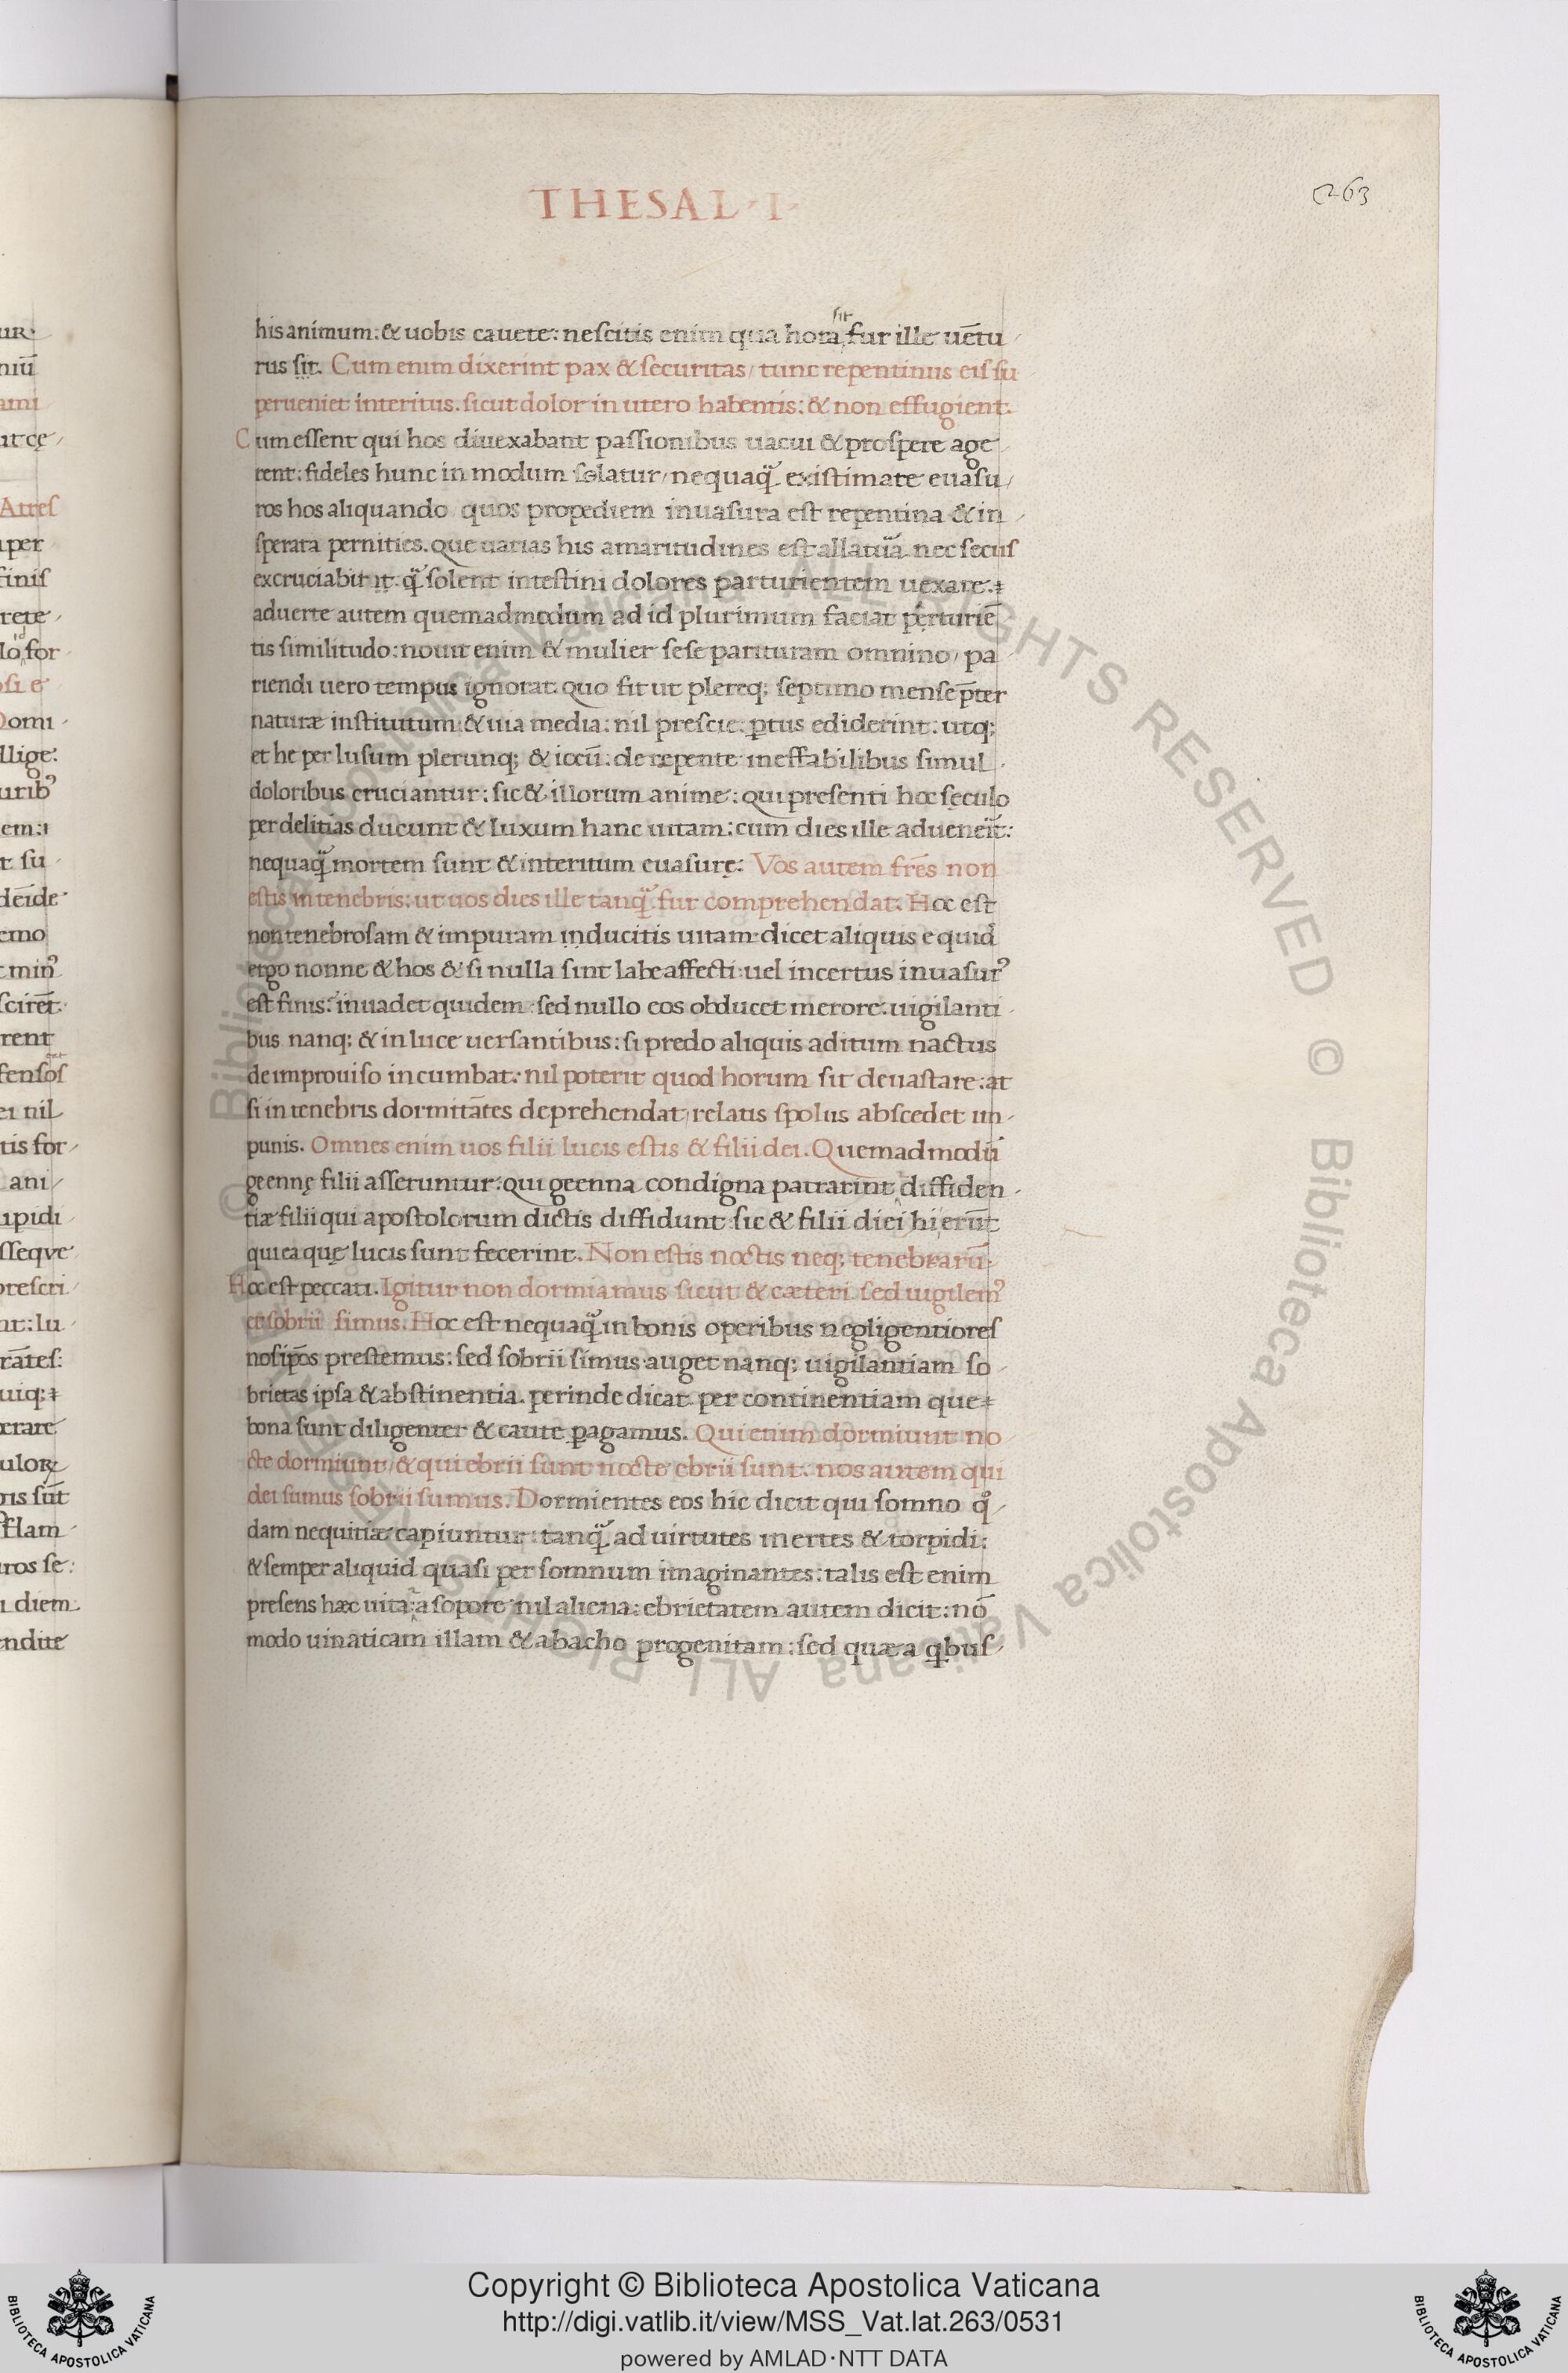 THESAL · I ·
263
sit
his animum: & uobis cauete: nescitis enim qua hora fur ille uẽtu
rus sit. Cum enim dixerint pax & securitas / tunc repentinus eis su
perueniet interitus. sicut dolor in utero habentis: & non effugient.
Cum essent qui hos diuexabant passionibus uacui & prospere age
rent: fideles hunc in modum solatur / nequaq̃ existimate euasu
ros hos aliquando quos propediem inuasura est repentina & in
sperata pernities. Que uarias his amaritudines est allatura nec secus
excruciabit q̃ solent intestini dolores parturientem uexare.
aduerte autem quemadmodum ad id plurimum faciat perturiẽ
tis similitudo: nouit enim & mulier sese parituram omnino / pa
riendi uero tempus ignorat. quo fit ut plereq; septimo mense p̃ter
naturæ institutum: & uia media: nil prescie. ptus ediderint. utq;
et he per lusum plerunq; & iocũ: de repente ineffabilibus simul
doloribus cruciantur: sic & illorum anime: qui presenti hoc sęculo
per delitias ducunt & luxum hanc uitam: cum dies ille adueneĩt:
nequaq̃ mortem sunt & interitum euasurę: Vos autem frẽs non
estis in tenebris: ut uos dies ille tanq̃ fur comprehendat. Hoc est
non tenebrosam & impuram inducitis uitam. dicet aliquis equid
ergo nonne & hos & si nulla sint labe affecti: uel incertus inuasur⁹
est finis: inuadet quidem: sed nullo eos obducet merore. uigilanti
bus nanq; & in luce uersantibus: si predo aliquis aditum nactus
de improuiso incumbat. nil poterit quod horum sit deuastare: at
si in tenebris dormitãtes deprehendat / relatis spolus abscedet im
punis. Omnes enim uos filii lucis estis & filii dei. Quemadmodũ
geennę filii asseruntur: qui geenna condigna patrarint diffiden
tiæ filii qui apostolorum dictis diffidunt sic & filii diei hi erũt
qui ea quę lucis sunt fecerint. Non estis noctis neq; tenebrarũ.
Hoc est peccati. Igitur non dormiamus sicut & cæteri sed uigilem⁹
et sobrii simus. Hoc est nequaq̃ in bonis operibus negligentiores
nosip̃os prestemus: sed sobrii simus. auget nanq; uigilantiam so
brietas ipsa & abstinentia. perinde dicat per continentiam que
bona sunt diligenter & caute pagamus. Qui enim dormiunt no
cte dormiunt / & qui ebrii sunt nocte ebrii sunt. nos autem qui
dei sumus sobrii sumus. Dormientes eos hic dicit qui somno q̊
dam nequitiæ capiuntur: tanq̃ ad uirtutes inertes & torpidi:
& semper aliquid quasi per somnum imaginantes: talis est enim
presens hæc uita: a sopore nil aliena: ebrietatem autem dicit: nõ
modo uinaticam illam & a bacho progenitam: sed quæ a qbus
Copyright © Biblioteca Apostolica Vaticana
http://digi.vatlib.it/view/MSS_Vat.lat.263/0531
powered by AMLAD·NTT DATA